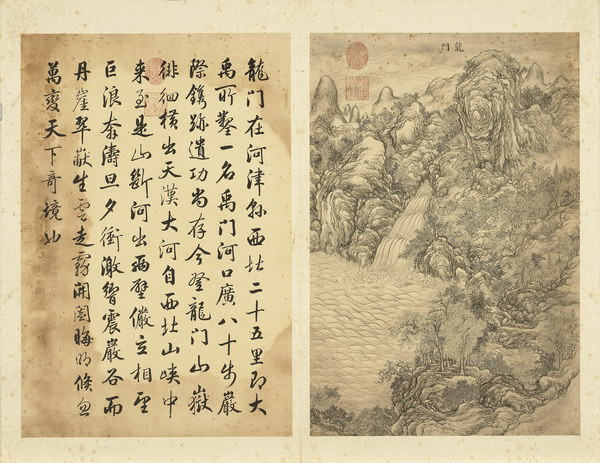 龍門
龍門在河津縣西北二十五里即大
禹所鑿一名禹門河口廣八十步巖
際鐫跡遺功尚存今登龍門山嶽
徘徊橫出天漢大河自西北山峽中
来至是山斷河出兩壁儼立相望
巨浪奔濤旦夕衝激響震巖谷而
丹崖翠巘生雲走霧開闔晦明倏忽
萬變天下奇境也